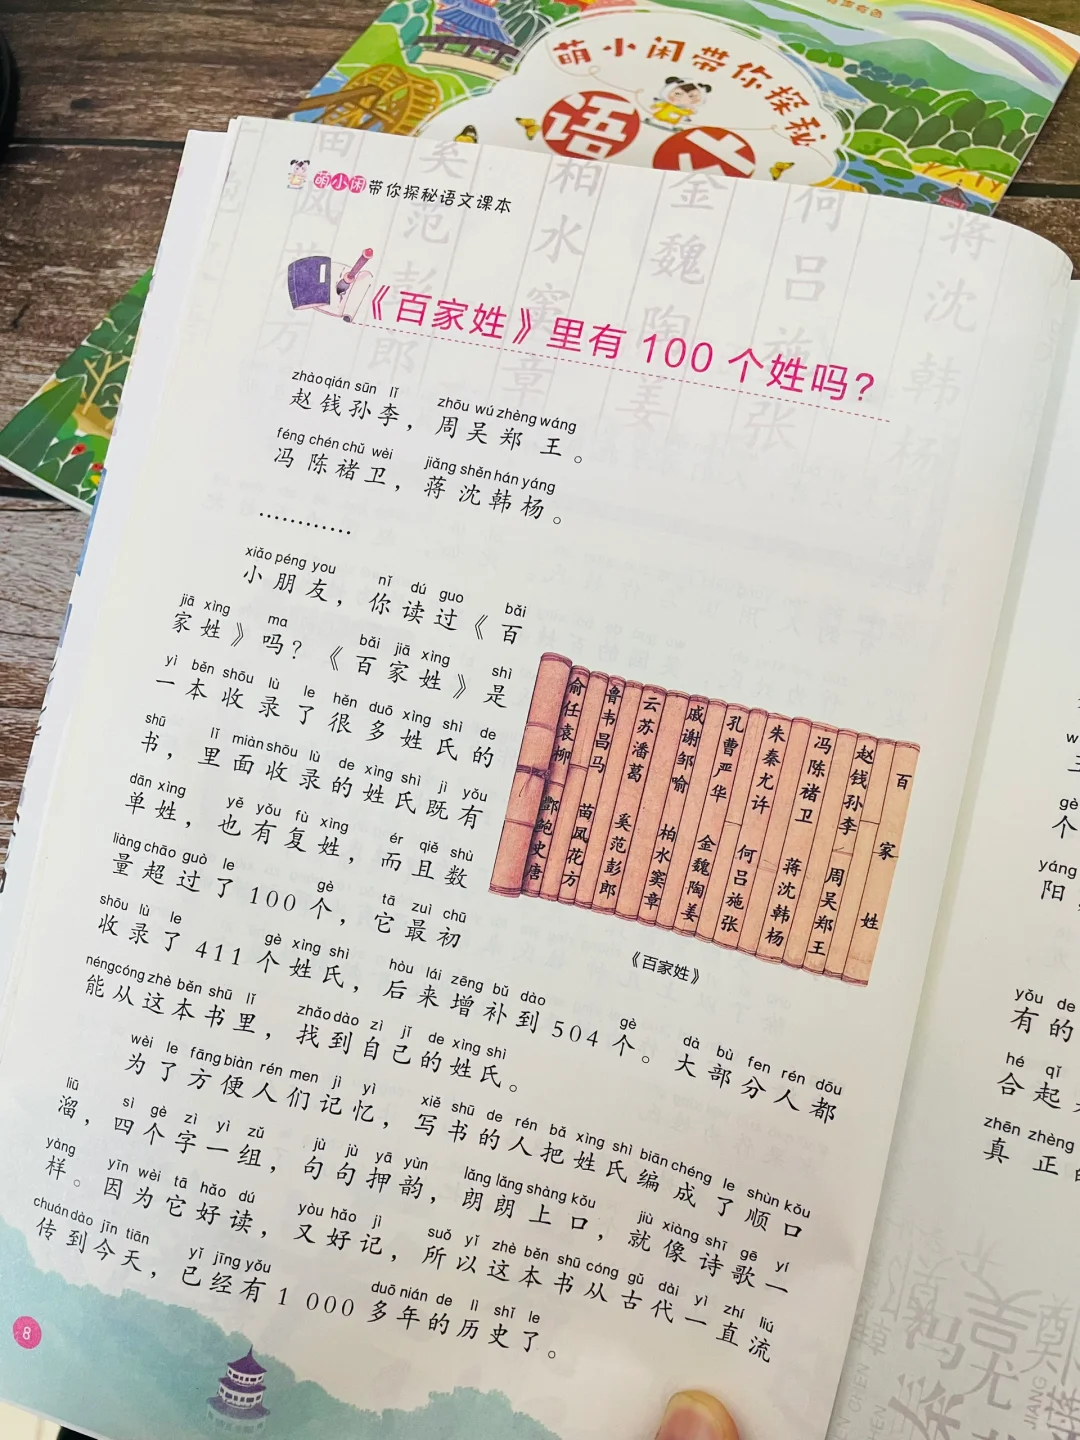 萌小闲带你探秘
语文
萌小闲带你探秘语文课本
《百家姓》里有100个姓吗？
zhào qián sūn lǐ zhōu wú zhèng wáng
赵钱孙李，周吴郑王。
féng chén chǔ wèi jiǎng shěn hán yáng
冯陈褚卫，蒋沈韩杨。
…………
xiǎo péng you nǐ dú guo bǎi
小朋友，你读过《百
jiā xìng ma bǎi jiā xìng shì
家姓》吗？《百家姓》是
yì běn shōu lù le hěn duō xìng shì de
一本收录了很多姓氏的
shū lǐ miàn shōu lù de xìng shì jì yǒu
书，里面收录的姓氏既有
dān xìng yě yǒu fù xìng ér qiě shù
单姓，也有复姓，而且数
liàng chāo guò le gè tā zuì chū
量超过了100个，它最初
shōu lù le gè xìng shì hòu lái zēng bǔ dào gè dà bù fen rén dōu
收录了411个姓氏，后来增补到504个。大部分人都
néng cóng zhè běn shū lǐ zhǎo dào zì jǐ de xìng shì
能从这本书里，找到自己的姓氏。
wèi le fāng biàn rén men jì yì xiě shū de rén bǎ xìng shì biān chéng le shùn kǒu
为了方便人们记忆，写书的人把姓氏编成了顺口
liū sì gè zì yì zǔ jù jù yā yùn lǎng lǎng shàng kǒu jiù xiàng shī gē yí
溜，四个字一组，句句押韵，朗朗上口，就像诗歌一
yàng yīn wèi tā hǎo dú yòu hǎo jì suǒ yǐ zhè běn shū cóng gǔ dài yì zhí liú
样。因为它好读，又好记，所以这本书从古代一直流
chuán dào jīn tiān yǐ jīng yǒu duō nián de lì shǐ le
传到今天，已经有1 000多年的历史了。
百家姓
赵钱孙李 周吴郑王
冯陈褚卫 蒋沈韩杨
朱秦尤许 何吕施张
孔曹严华 金魏陶姜
戚谢邹喻 柏水窦章
云苏潘葛 奚范彭郎
鲁韦昌马 苗凤花方
俞任袁柳 酆鲍史唐
《百家姓》
8
gè
个
yáng
阳
yǒu de
有的
hé qǐ
合起
zhēn zhèng
真正